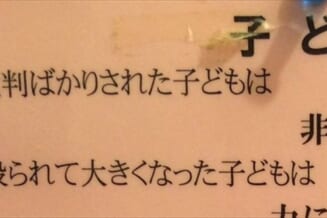 子ど
判ばかりされた子どもは
非
られて大きくなった子どもは
力に